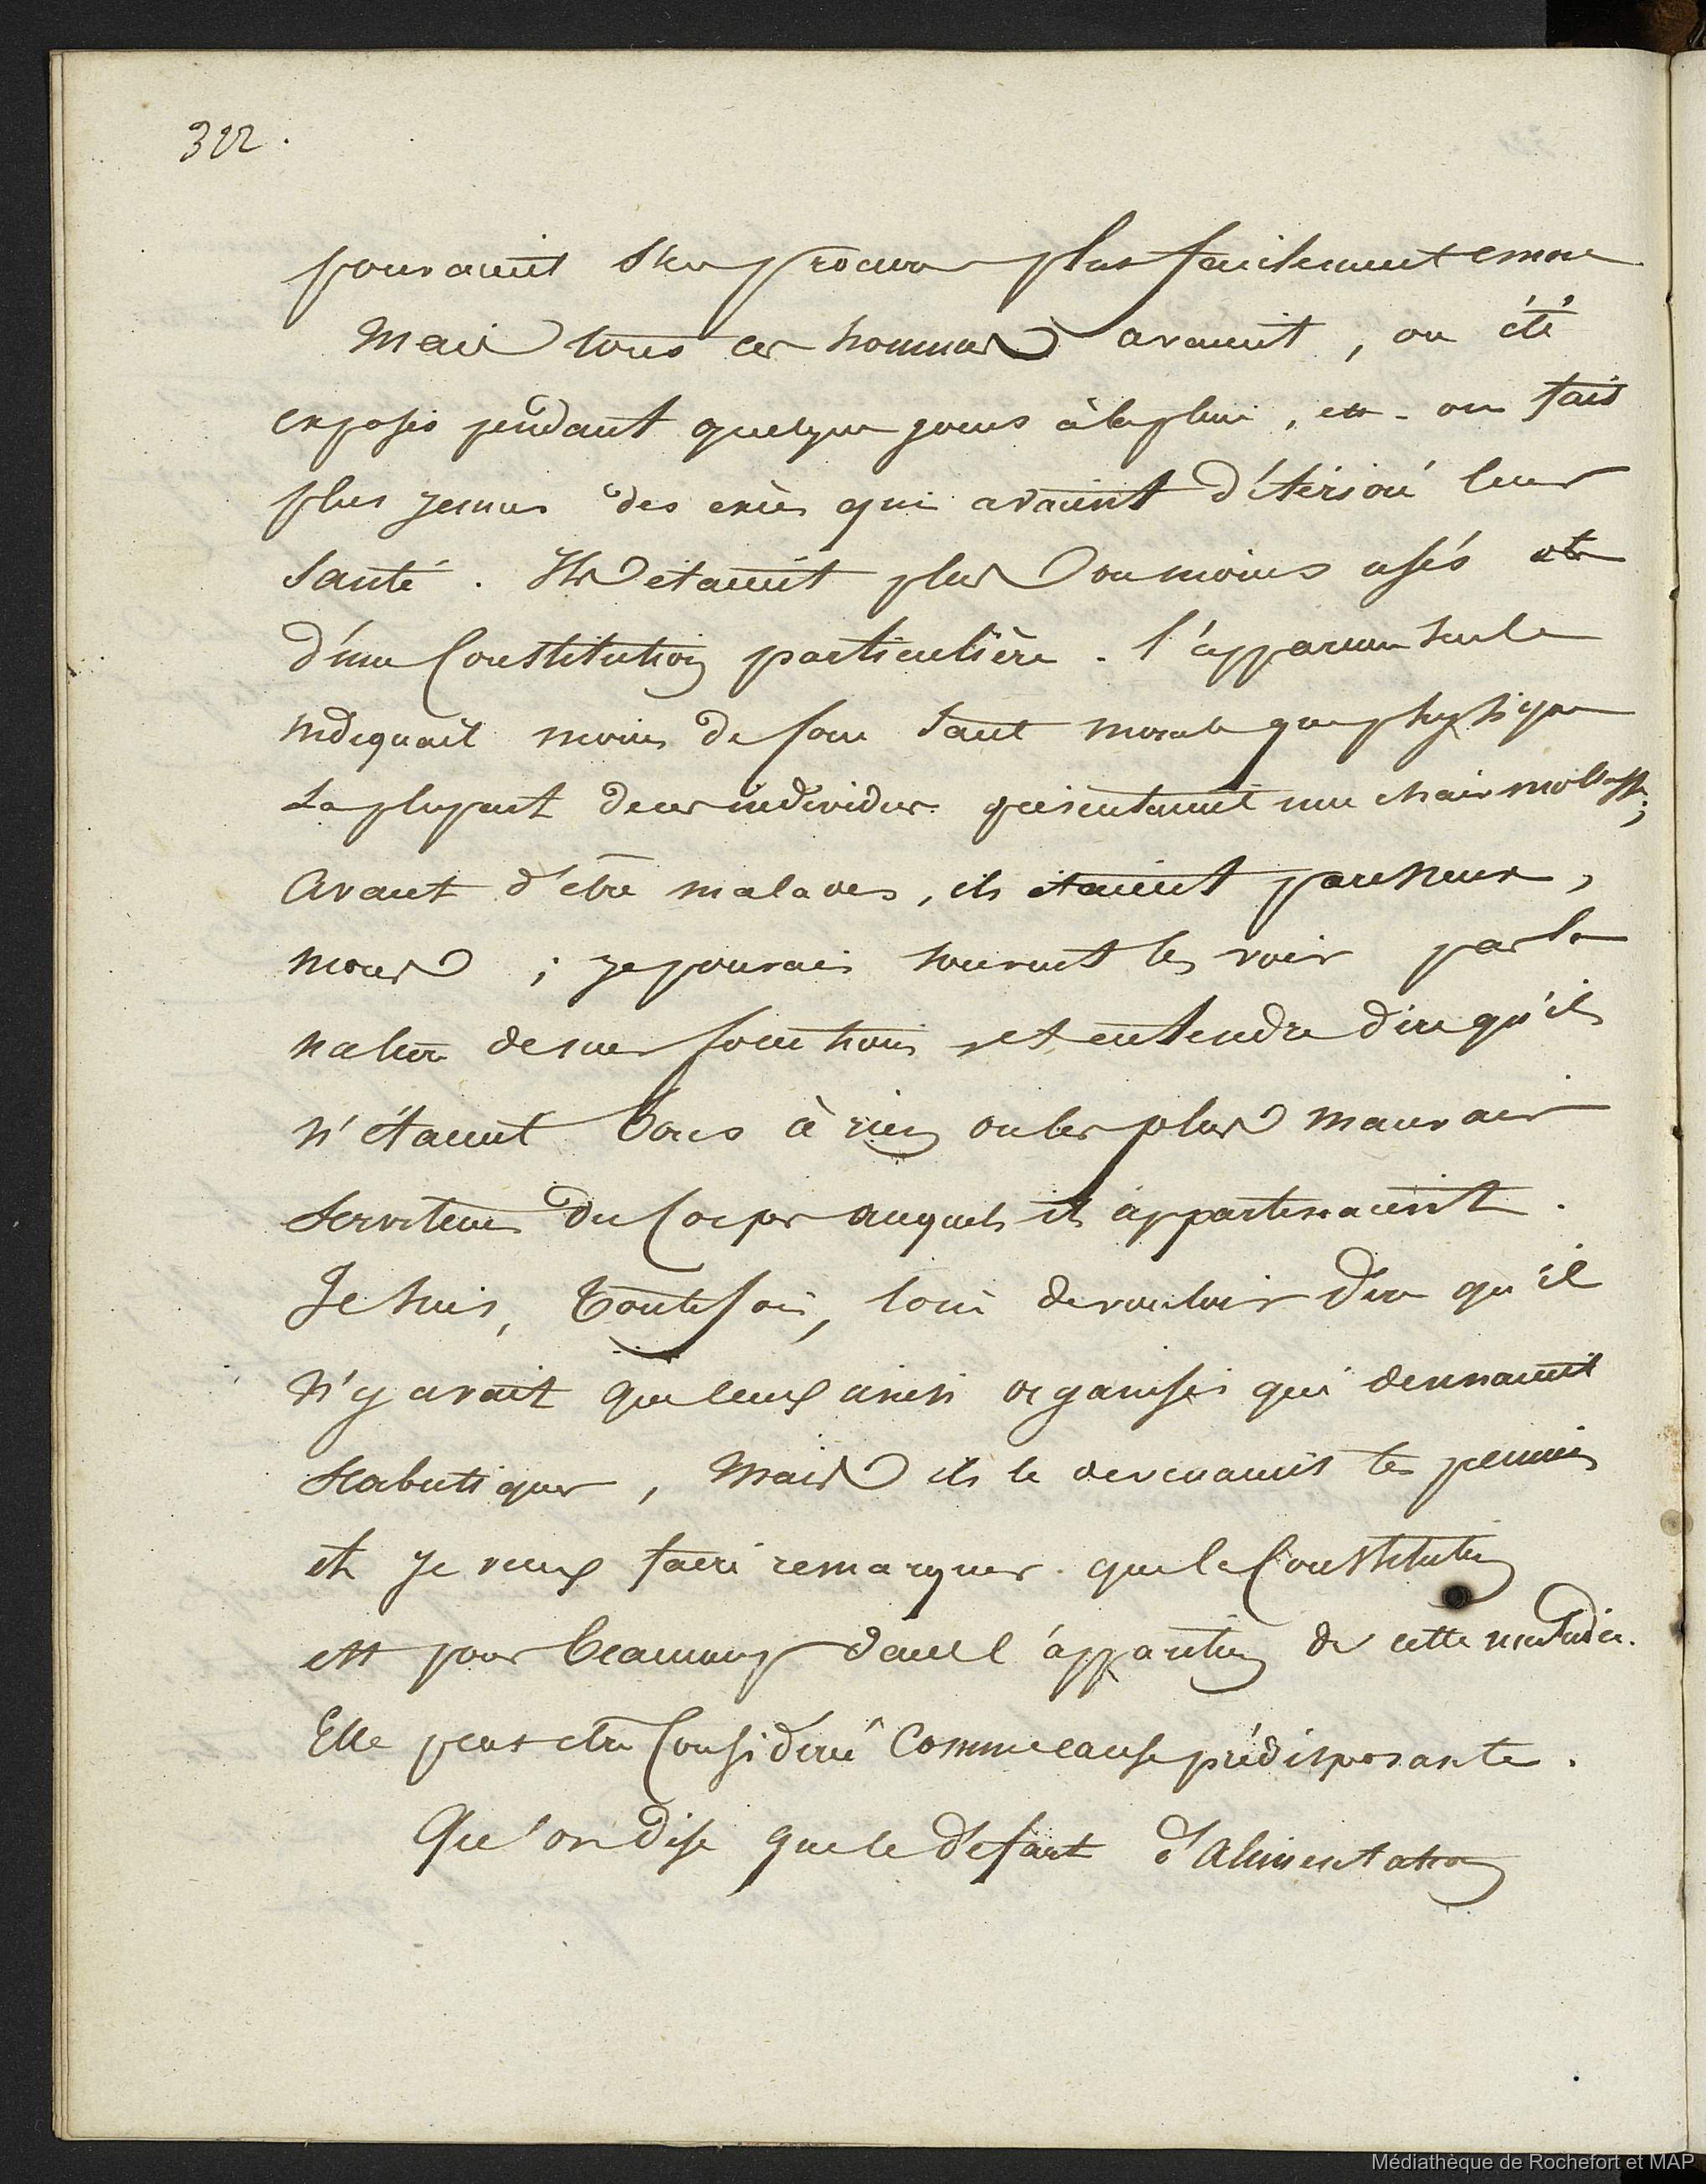 322.
pouvaient s'en procurer plus facilement encore
Mais tous ces hommes avaient, ou été
exposés pendant quelques jours à la pluie, ou fait
plus jeunes des excès qui avaient détérioré leur
santé. Ils etaient plus ou moins usés et
d'une Constitution particulière. l'apparence seule
indiquait moins de force tant morale que physique
La plupart de ces individus présentaient une chair mollasse;
Avant d'être malades, ils étaient paresseux,
mous ; je pouvais souvent les voir par la
nature de mes fonctions et entendre dire qu'ils
n'étaient bons à rien ou les plus mauvais
serviteurs du Corps auquels ils appartenaient.
Je suis, toutefois, loin de vouloir dire qu'il
n'y avait que ceux ainsi organisés qui devinaient
scabutiques, Mais ils le devenaient les premiers
et je veux faire remarquer que la Constitution
est pour beaucoup dans l'apparition de cette maladie.
Elle peut être Considerée Comme cause prédisposante.
Qu'on dise que le défaut d'Alimentation
Médiathèque de Rochefort et MAP